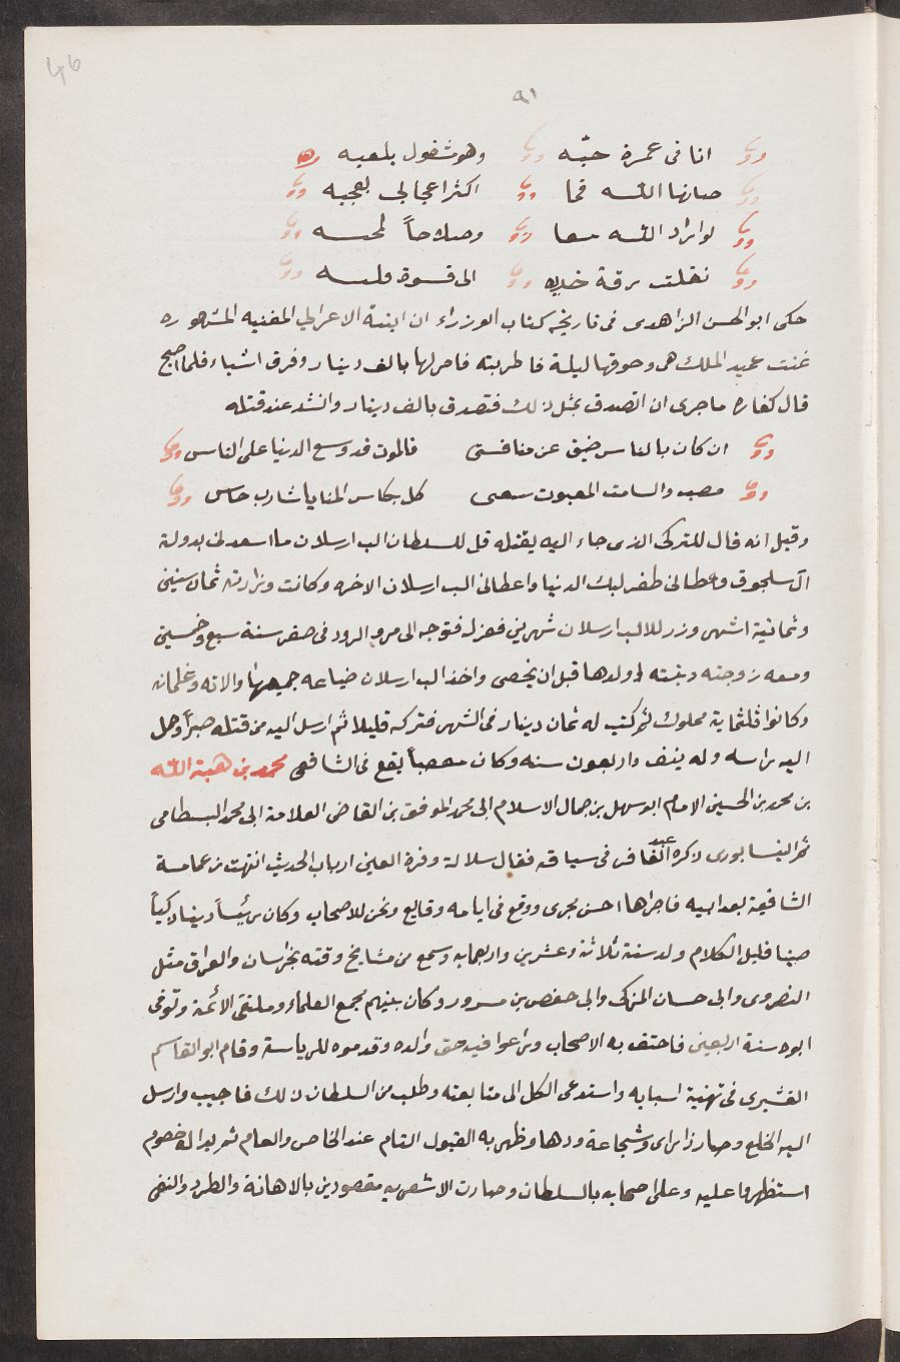 46
٩١
انا فى عمرة حبّه وهو مشغول بلعبه
صانها اللّه فما اكثر اعجابى بعجبه
لو اراد اللّه نفعا وصلاحاً لمحبه
نقلت رقة خديه الى قسوة قلبه
حكى ابو الحسن الزاهدى فى تاريخه كتاب الوزراء ان ابنة الاعرابي المغنيه المشهوره
غنت عميد الملك هى وجوقها ليلة فاطربته فامر لها بالف دينار وفرق اشياء فلما اصبح
قال كفاره ما جرى ان اتصدق بمثل ذلك فتصدق بالف دينار وانشد عند قتله
ان كان بالناس ضيق عن منافستى فالموت قد وسع الدنيا على الناس
مضيت والشامت المغبون يتبعنى كل بكاس المنايا شارب حاس
وقيل انه قال للتركى الذى جاء اليه يقتله قل للسلطان الب ارسلان ما اسعدنى بدولة
آل سلجوق اعطانى طغرلبك الدنيا واعطانى الب ارسلان الاخره وكانت وزارته ثمان سنين
وثمانية اشهر وزر للالب ارسلان شهرين فعزله فتوجه الى مرو الرود فى صفر سنة سبع وخمسين
ومعه زوجته وبنته اولدها قبل ان يخصى واخذ الب ارسلان ضياعه جميعها والاته وغلمانه
وكانوا ثلثماية مملوك ثم كتب له ثمان دينار فى الشهر فتركه قليلا ثم ارسل اليه من قتله صبراً وحمل
اليه راسه وله ينف واربعون سنه وكان متعصباً يقع فى الشافعى محمد بن هبة اللّه
بن محمد بن الحسين الامام ابو سهل بن جمال الاسلام ابى محمد الموفق بن القاضى العلامة ابى محمد البسطامى
ثم النيسابورى ذكره عبد الغافر فى سياقه فقال سلالة وقرة العين ارباب الحديث انتهت زعامة
الشافعية بعد ابيه فاجراها احسن مجرى ووقع فى ايامه وقايع ومحن للاصحاب وكان رئيساً دينا ذكياً
صينا قليل الكلام ولد سنة ثلاثة وعشرين واربعمايه وسمع من مشايخ وقته بخراسان والعراق مثل
النصروى وابى حسان المزكى وابى حفص بن مسرور وكان بيتهم مجمع العلماء وملتقى الائمة وتوفى
ابوه سنة اربعين فاحتف به الاصحاب وراعوا فيه حق والده وقدموه للرياسة وقام ابو القاسم
القشيرى فى تهنية اسبابه واستدعى الكل الى متابعته وطلب من السلطان ذلك فاجيب وارسل
اليه الخلع وصار ذا راى وشجاعة ودها وظهر به القبول التام عند الخاص والعام ثم بدا له خصوم
استظهروا عليه وعلى اصحابه بالسلطان وصارت الاشعريه مقصودين بالاهانة والطرد والنفى